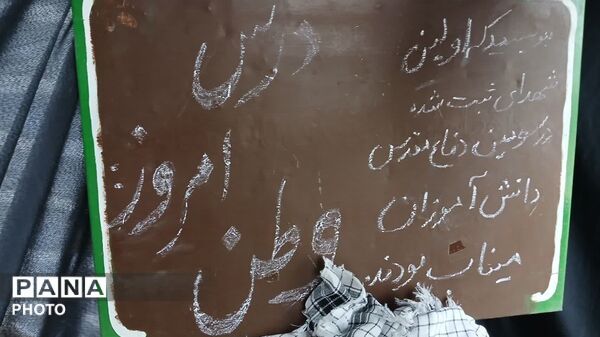 بنویسید که اولین
شهدای ثبت شده
در سومین دفاع مقدس
دانش آموزان
میناب بودند
درس
امروز:
وطن
PANA
PHOTO